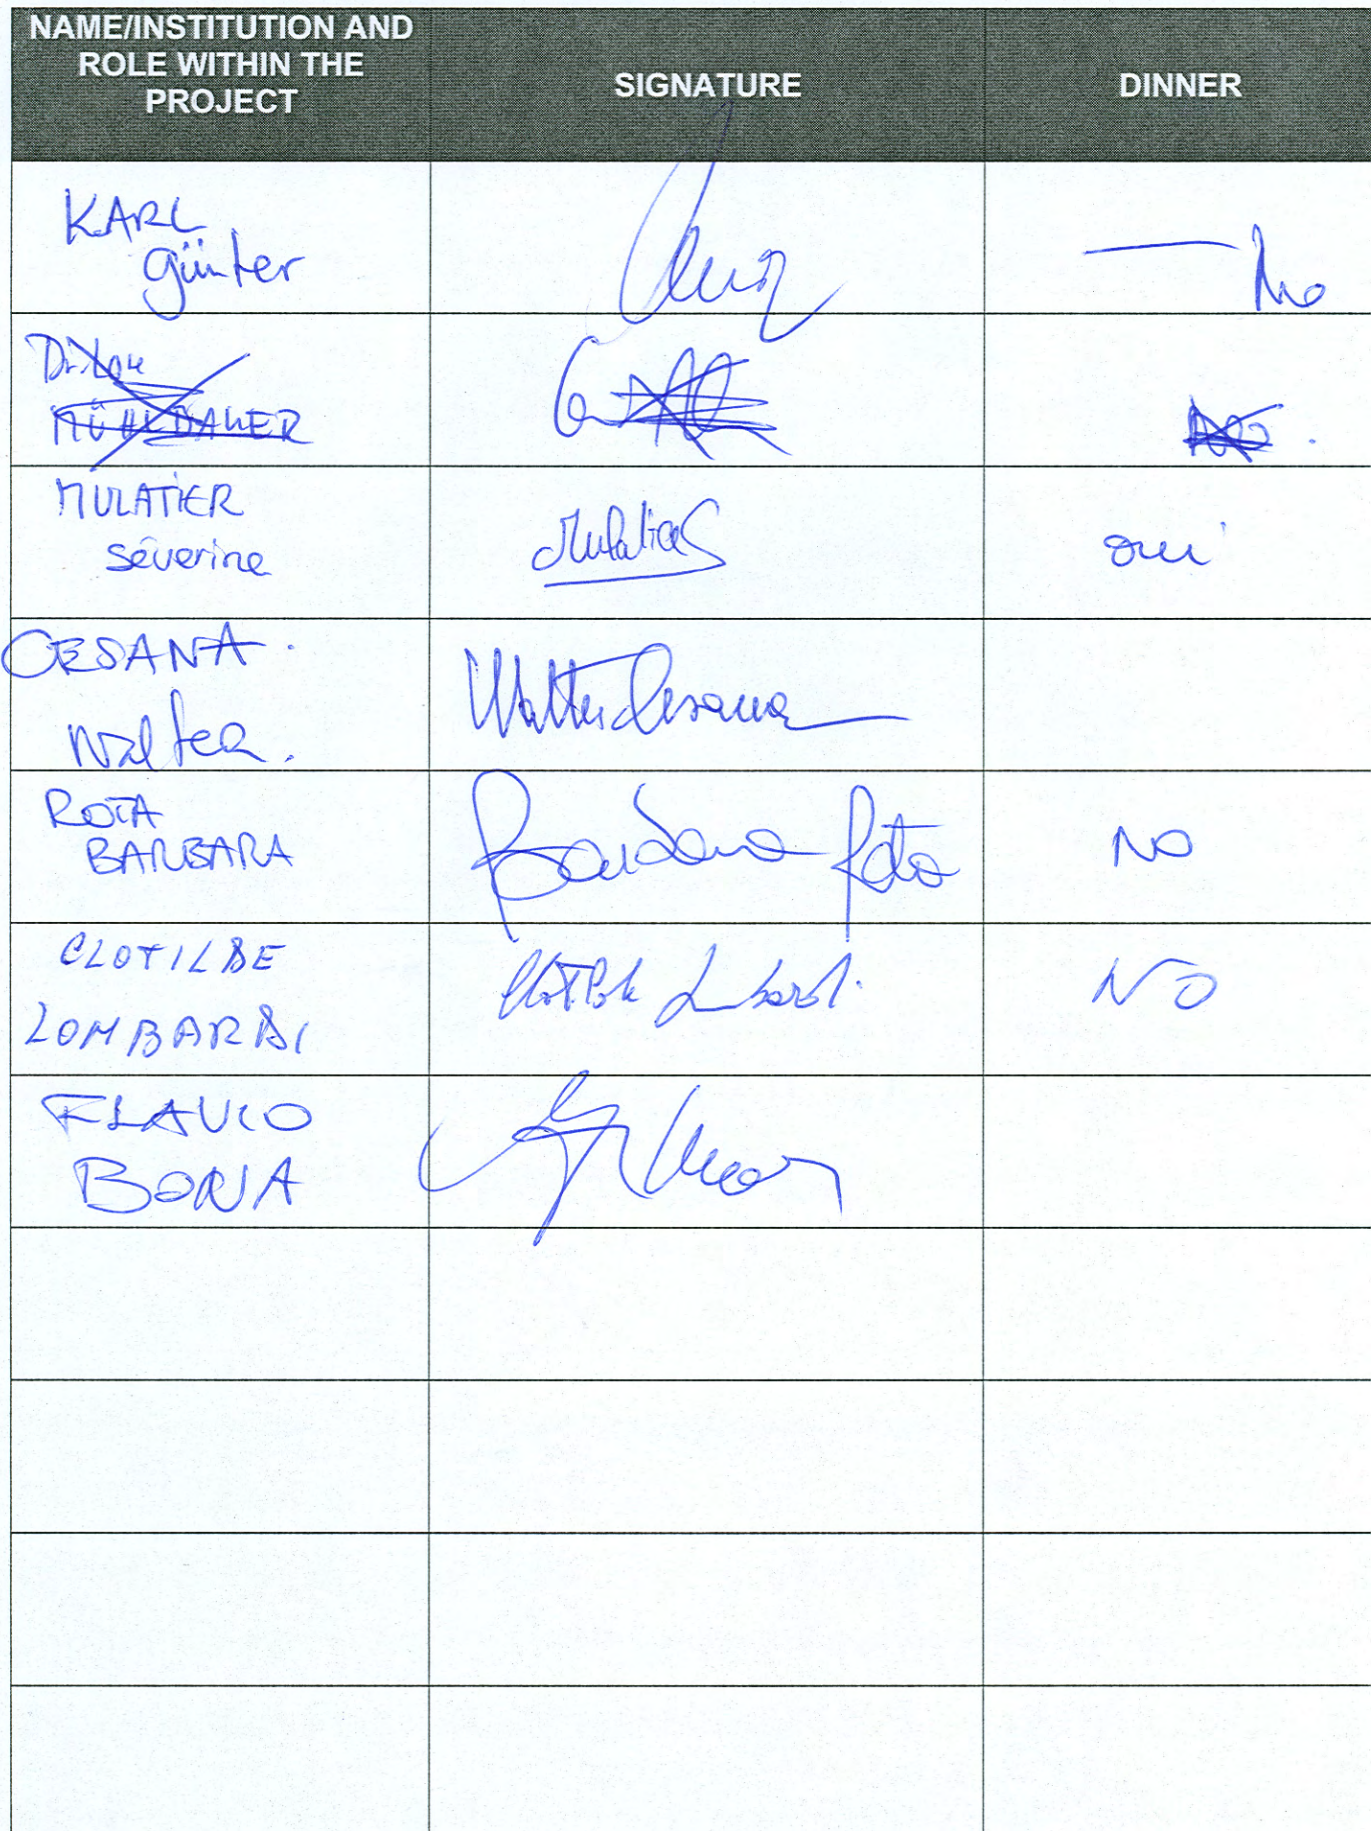 NAME/INSTITUTION AND
ROLE WITHIN THE
PROJECT
SIGNATURE
DINNER
KARL
günter
No
MÜHLBAUER
MULATIER
Séverine
oui
CESANA.
Walter.
Walter Cesana
ROTA
BARBARA
Barbara Rota
NO
CLOTILDE
LOMBARDI
NO
FLAVIO
BONA